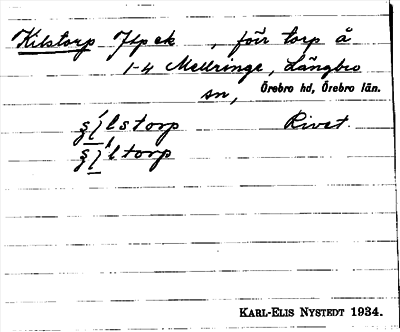 Kilstorp Jlp ek , förr torp å
1-4 Mellringe, Längbro
sn, Örebro hd, Örebro län.
lstorp Rivet.
ltorp
KARL-ELIS NYSTEDT 1934.